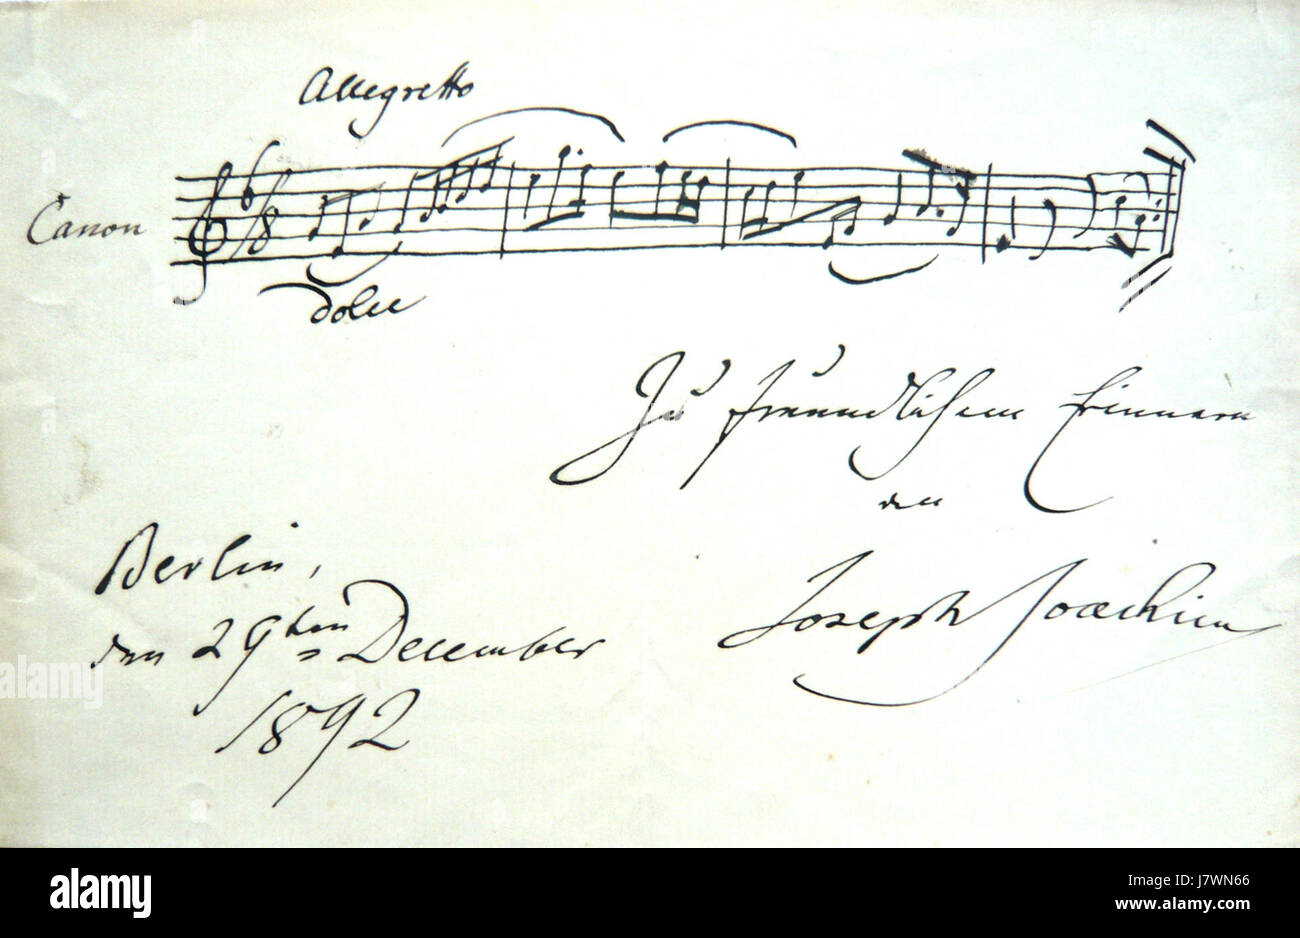 Allegretto
Canon
dolce
Zu freundlichem Erinnern
den
Joseph Joachim
Berlin,
den 29ten December
1892
alamy
alamy
Image ID: J7WN66
www.alamy.com